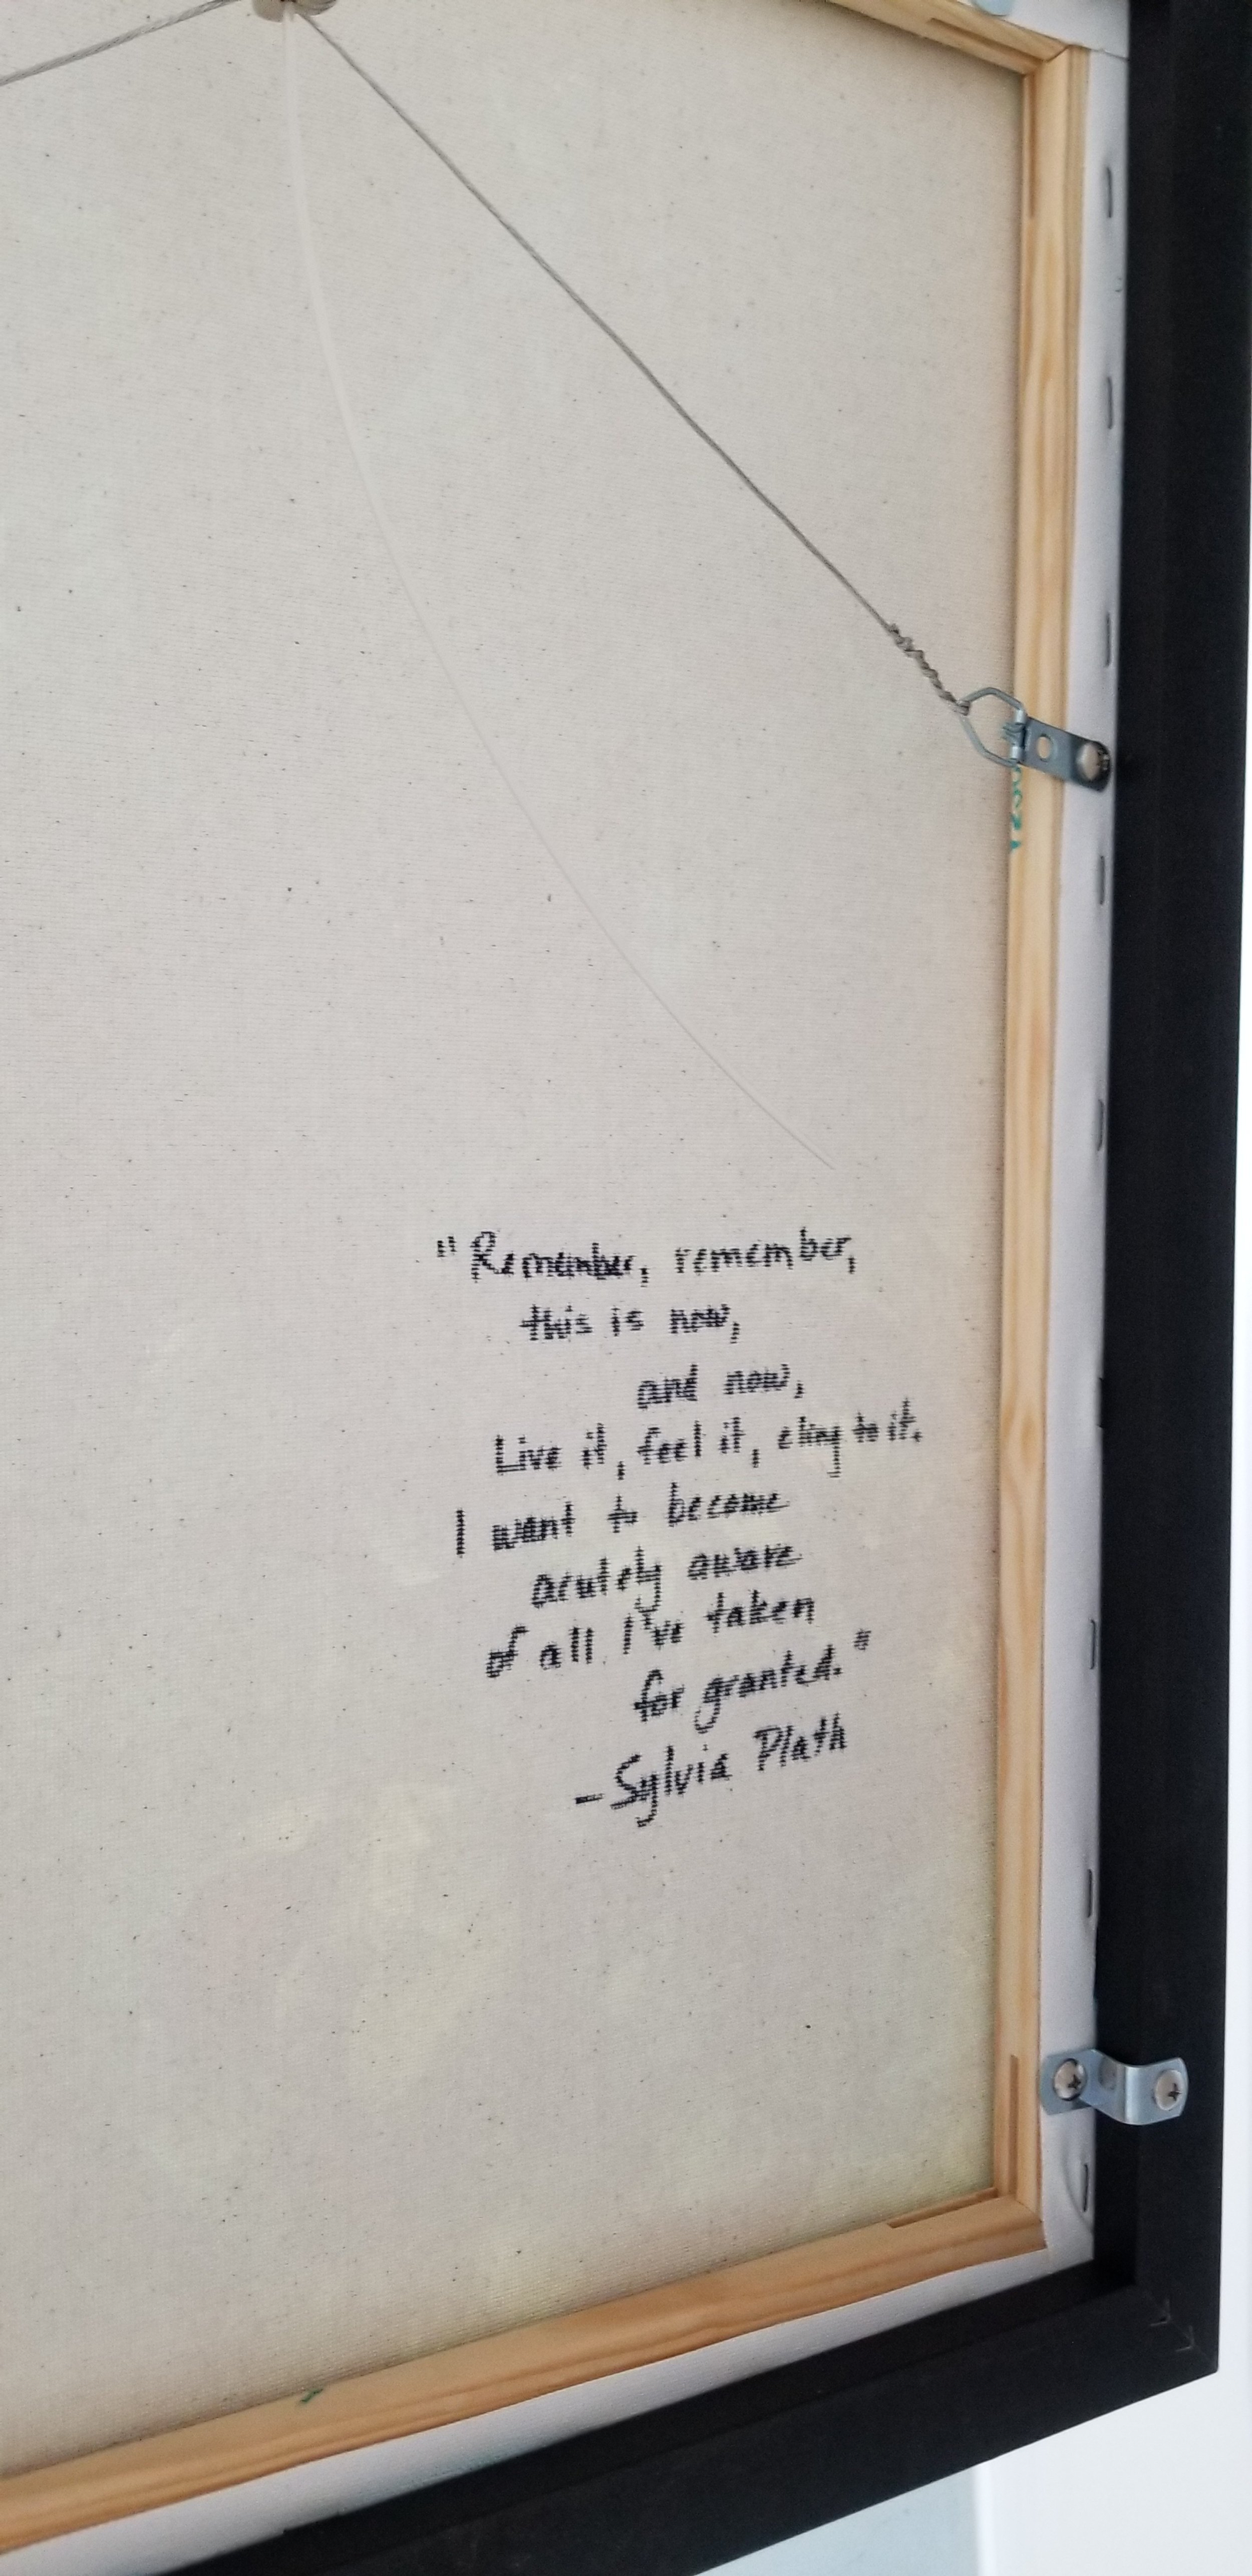 "Remember, remember,
this is now,
and now,
Live it, feel it, cling to it.
I want to become
acutely aware
of all I've taken
for granted."
-Sylvia Plath